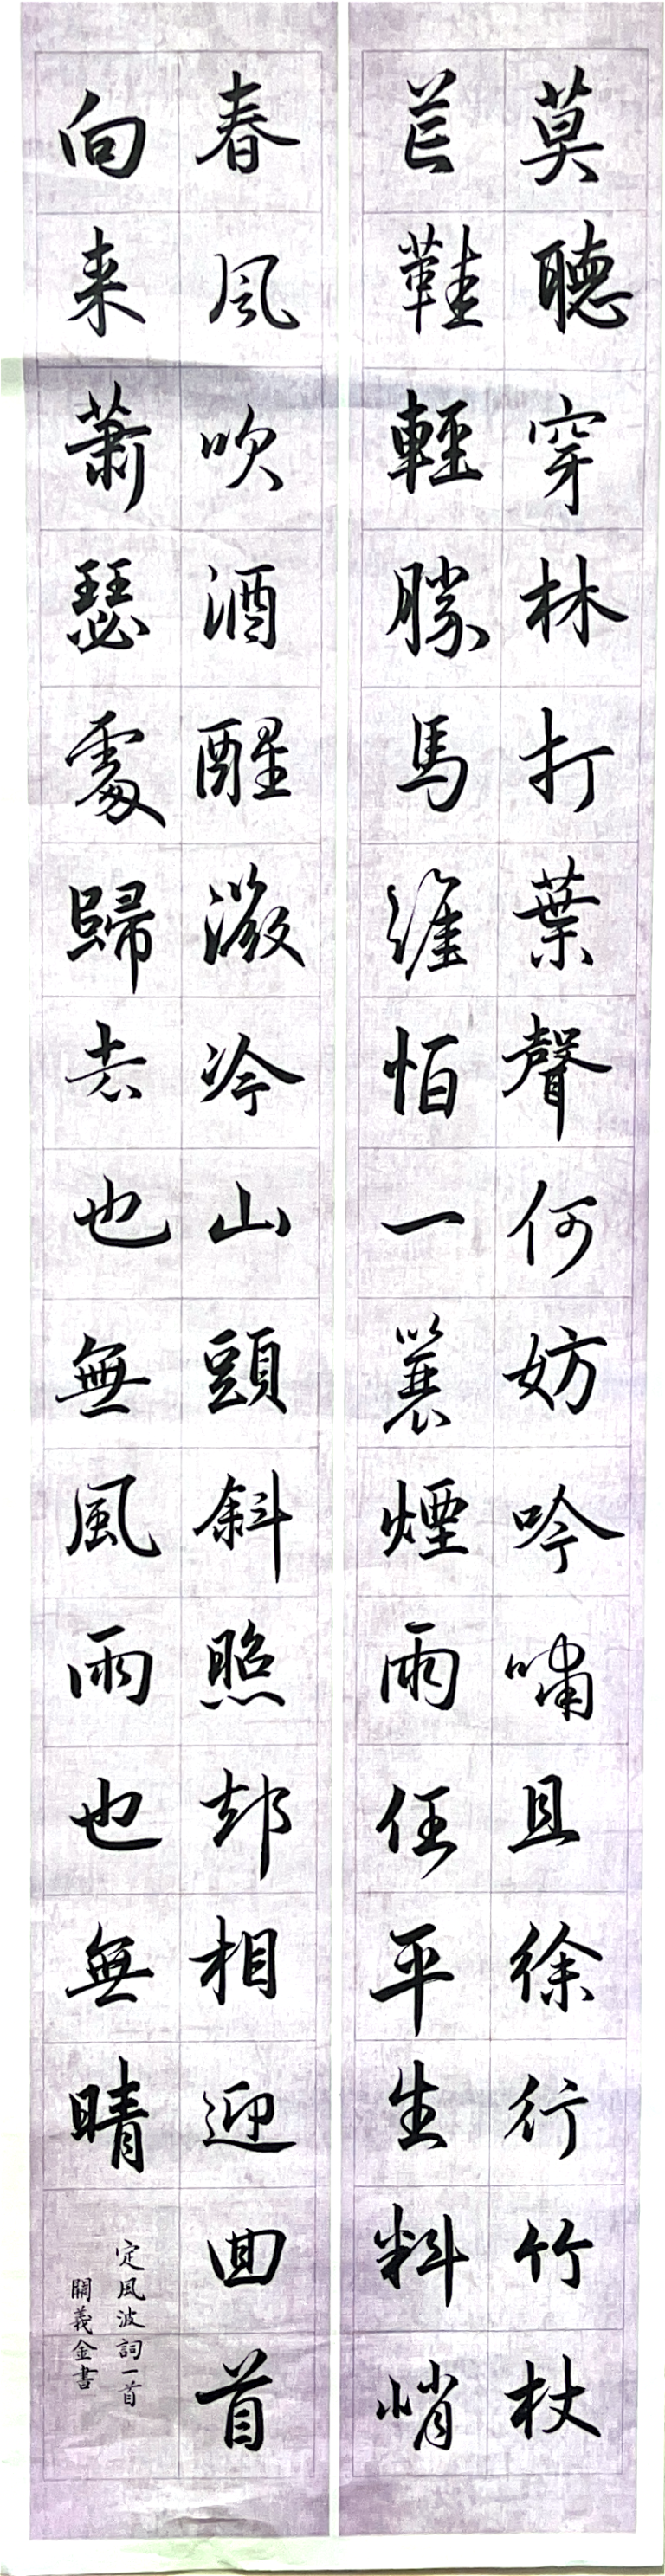 莫聽穿林打葉聲何妨吟嘯且徐行竹杖
芒鞋輕勝馬誰怕一蓑煙雨任平生料峭
春風吹酒醒微冷山頭斜照却相迎回首
向来蕭瑟處歸去也無風雨也無晴
定風波詞一首
關義金書